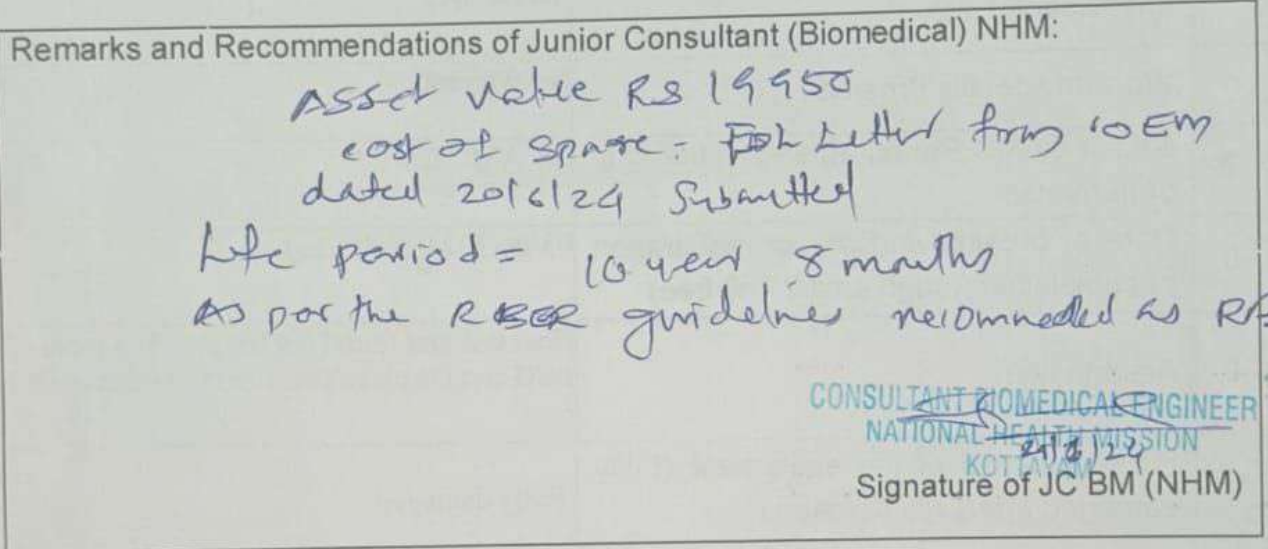 Remarks and Recommendations of Junior Consultant (Biomedical) NHM:
Asset value Rs 19950
cost of spare - EOL Letter from OEM
dated 20/6/24 Submitted
Life period = 10 year 8 months
As per the guidelines recomneded as
CONSULTANT BIOMEDICAL ENGINEER
NATIONAL HEALTH MISSION
KOTTAYAM
Signature of JC BM (NHM)